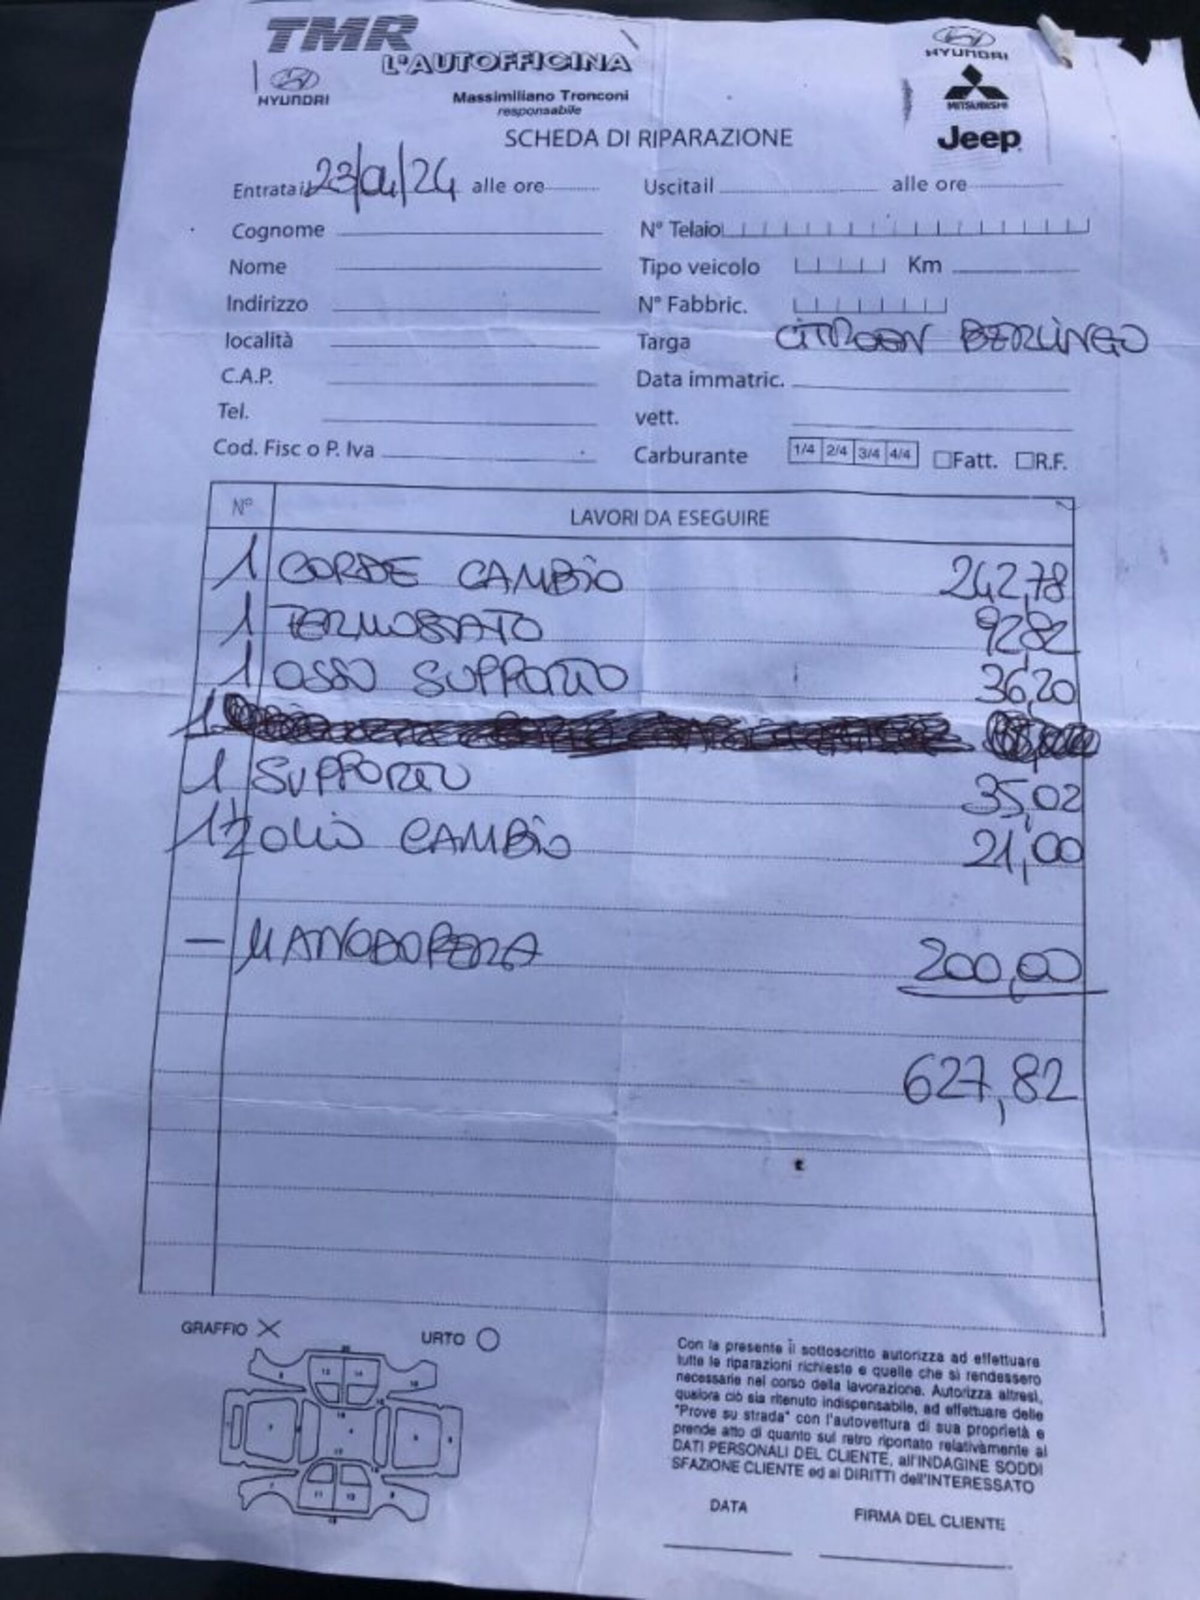 TMR
L'AUTOFFICINA
HYUNDAI
Massimiliano Tronconi
responsabile
HYUNDAI
MITSUBISHI
Jeep
SCHEDA DI RIPARAZIONE
Entrata il 23/04/24 alle ore
Uscita il alle ore
Cognome
N° Telaio
Nome
Tipo veicolo Km
Indirizzo
N° Fabbric.
località
Targa CITROEN BERLINGO
C.A.P.
Data immatric.
Tel.
vett.
Cod. Fisc o P. Iva
Carburante 1/4 2/4 3/4 4/4 Fatt. R.F.
N° LAVORI DA ESEGUIRE
1 CORDE CAMBIO 242,78
1 TERMOSTATO 92,82
1 OSSO SUPPORTO 36,20
1
1 SUPPORTO 35,02
1 1/2 OLIO CAMBIO 21,00
— MANODOPERA 200,00
627,82
GRAFFIO X
URTO O
Con la presente il sottoscritto autorizza ad effettuare
tutte le riparazioni richieste e quelle che si rendessero
necessarie nel corso della lavorazione. Autorizza altresì,
qualora ciò sia ritenuto indispensabile, ad effettuare delle
"Prove su strada" con l'autovettura di sua proprietà e
prende atto di quanto sul retro riportato relativamente ai
DATI PERSONALI DEL CLIENTE, all'INDAGINE SODDI
SFAZIONE CLIENTE ed ai DIRITTI dell'INTERESSATO
DATA
FIRMA DEL CLIENTE